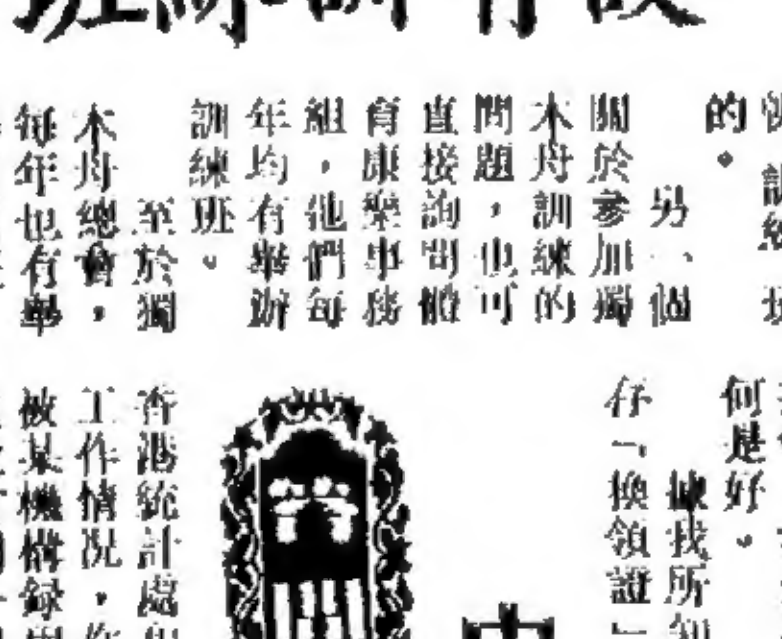 設有訓練班
的。
另一個
關於參加獨
木舟訓練的
問題，也可
直接詢問體
育康樂事務
組，他們每
年均有舉辦
訓練班。
至於獨
木舟總會，
每年也有舉
何是好。
據我所知
「換領證」
香港統計處
工作情況，
被某機構録